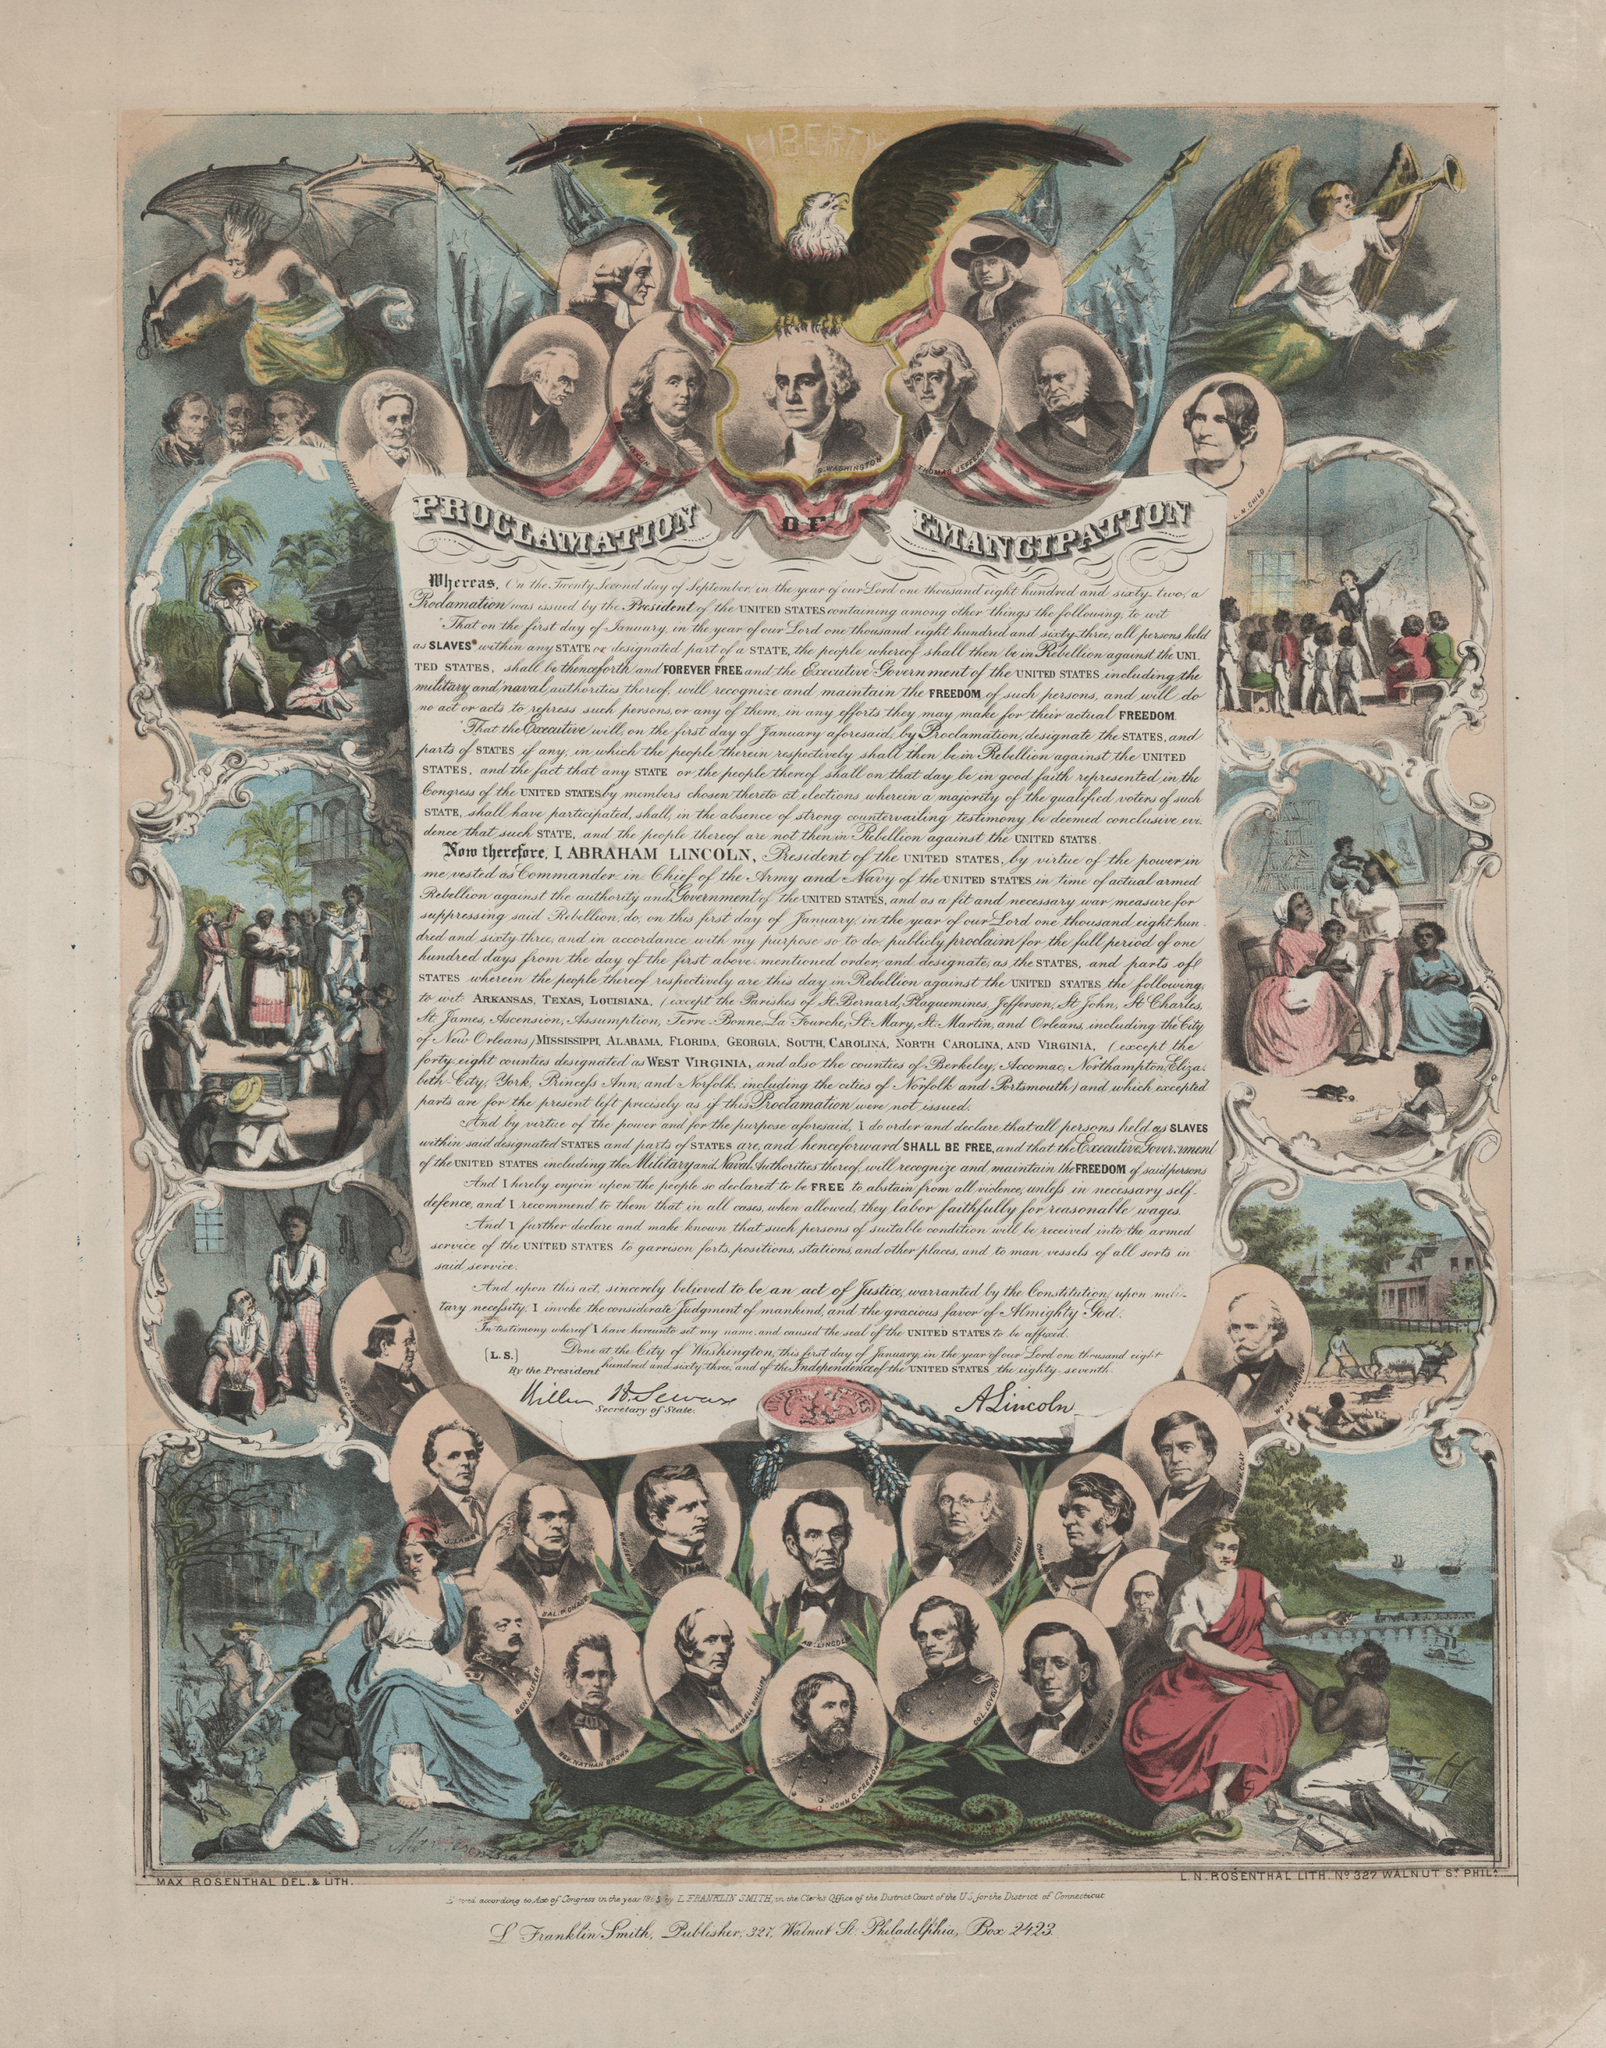 LIBERTY
G. WASHINGTON
THOMAS JEFFERSON
L. M. CHILD
PROCLAMATION OF EMANCIPATION
Whereas, On the Twenty Second day of September, in the year of our Lord one thousand eight hundred and sixty two, a
Proclamation was issued by the President of the UNITED STATES containing among other things the following, to wit
"That on the first day of January, in the year of our Lord one thousand eight hundred and sixty three, all persons held
as SLAVES" within any STATE or designated part of a STATE, the people whereof shall then be in Rebellion against the UNI-
TED STATES, shall be thenceforth and FOREVER FREE and the Executive Government of the UNITED STATES including the
military and naval authorities thereof, will recognize and maintain the FREEDOM of such persons, and will do
no act or acts to repress such persons, or any of them, in any efforts they may make for their actual FREEDOM.
"That the Executive will, on the first day of January aforesaid, by Proclamation, designate the STATES, and
parts of STATES if any, in which the people therein respectively shall then be in Rebellion against the UNITED
STATES, and the fact that any STATE or the people thereof shall on that day be in good faith represented in the
Congress of the UNITED STATES by members chosen thereto at elections wherein a majority of the qualified voters of such
STATE, shall have participated, shall, in the absence of strong countervailing testimony be deemed conclusive evi-
dence that such STATE, and the people thereof are not then in Rebellion against the UNITED STATES.
Now therefore, I, ABRAHAM LINCOLN, President of the UNITED STATES, by virtue of the power in
me vested as Commander in Chief of the Army and Navy of the UNITED STATES in time of actual armed
Rebellion against the authority and Government of the UNITED STATES, and as a fit and necessary war measure for
suppressing said Rebellion, do, on this first day of January, in the year of our Lord one thousand eight hun-
dred and sixty three, and in accordance with my purpose so to do, publicly proclaim for the full period of one
hundred days from the day of the first above mentioned order, and designate, as the STATES, and parts of
STATES wherein the people thereof respectively are this day in Rebellion against the UNITED STATES, the following,
to wit: ARKANSAS, TEXAS, LOUISIANA, (except the Parishes of St. Bernard, Plaquemines, Jefferson, St. John, St. Charles,
St. James, Ascension, Assumption, Terre-Bonne, La Fourche, St. Mary, St. Martin, and Orleans, including the City
of New Orleans) MISSISSIPPI, ALABAMA, FLORIDA, GEORGIA, SOUTH CAROLINA, NORTH CAROLINA, AND VIRGINIA, (except the
forty eight counties designated as WEST VIRGINIA, and also the counties of Berkeley, Accomac, Northampton, Eliza-
beth-City, York, Princess Ann, and Norfolk, including the cities of Norfolk and Portsmouth) and which excepted
parts are for the present left precisely as if this Proclamation were not issued.
And by virtue of the power and for the purpose aforesaid, I do order and declare that all persons held as SLAVES
within said designated STATES and parts of STATES are, and henceforward SHALL BE FREE, and that the Executive Government
of the UNITED STATES including the Military and Naval Authorities thereof, will recognize and maintain the FREEDOM of said persons
And I hereby enjoin upon the people so declared to be FREE to abstain from all violence, unless in necessary self-
defence, and I recommend to them that in all cases, when allowed, they labor faithfully for reasonable wages.
And I further declare and make known that such persons of suitable condition will be received into the armed
service of the UNITED STATES to garrison forts, positions, stations, and other places, and to man vessels of all sorts in
said service.
And upon this act, sincerely believed to be an act of Justice, warranted by the Constitution, upon mili-
tary necessity, I invoke the considerate Judgment of mankind, and the gracious favor of Almighty God.
In testimony whereof I have hereunto set my name, and caused the seal of the UNITED STATES to be affixed.
[L. S.] Done at the City of Washington, this first day of January, in the year of our Lord one thousand eight
By the President hundred and sixty three, and of the Independence of the UNITED STATES the eighty-seventh.
William H. Seward
Secretary of State.
A Lincoln
UNITED STATES
SAL. P. CHASE
AB. LINCOLN
BEN. BUTLER
REV. NATHAN BROWN
WENDELL PHILLIPS
COL. LOVEJOY
JOHN C. FREMONT
MAX ROSENTHAL DEL. & LITH.
L. N. ROSENTHAL LITH. No. 327 WALNUT St. PHILa.
according to Act of Congress in the year 1865 by L. FRANKLIN SMITH, in the Clerk's Office of the District Court of the U.S. for the District of Connecticut
L Franklin Smith, Publisher, 327, Walnut St. Philadelphia, Box 2423.